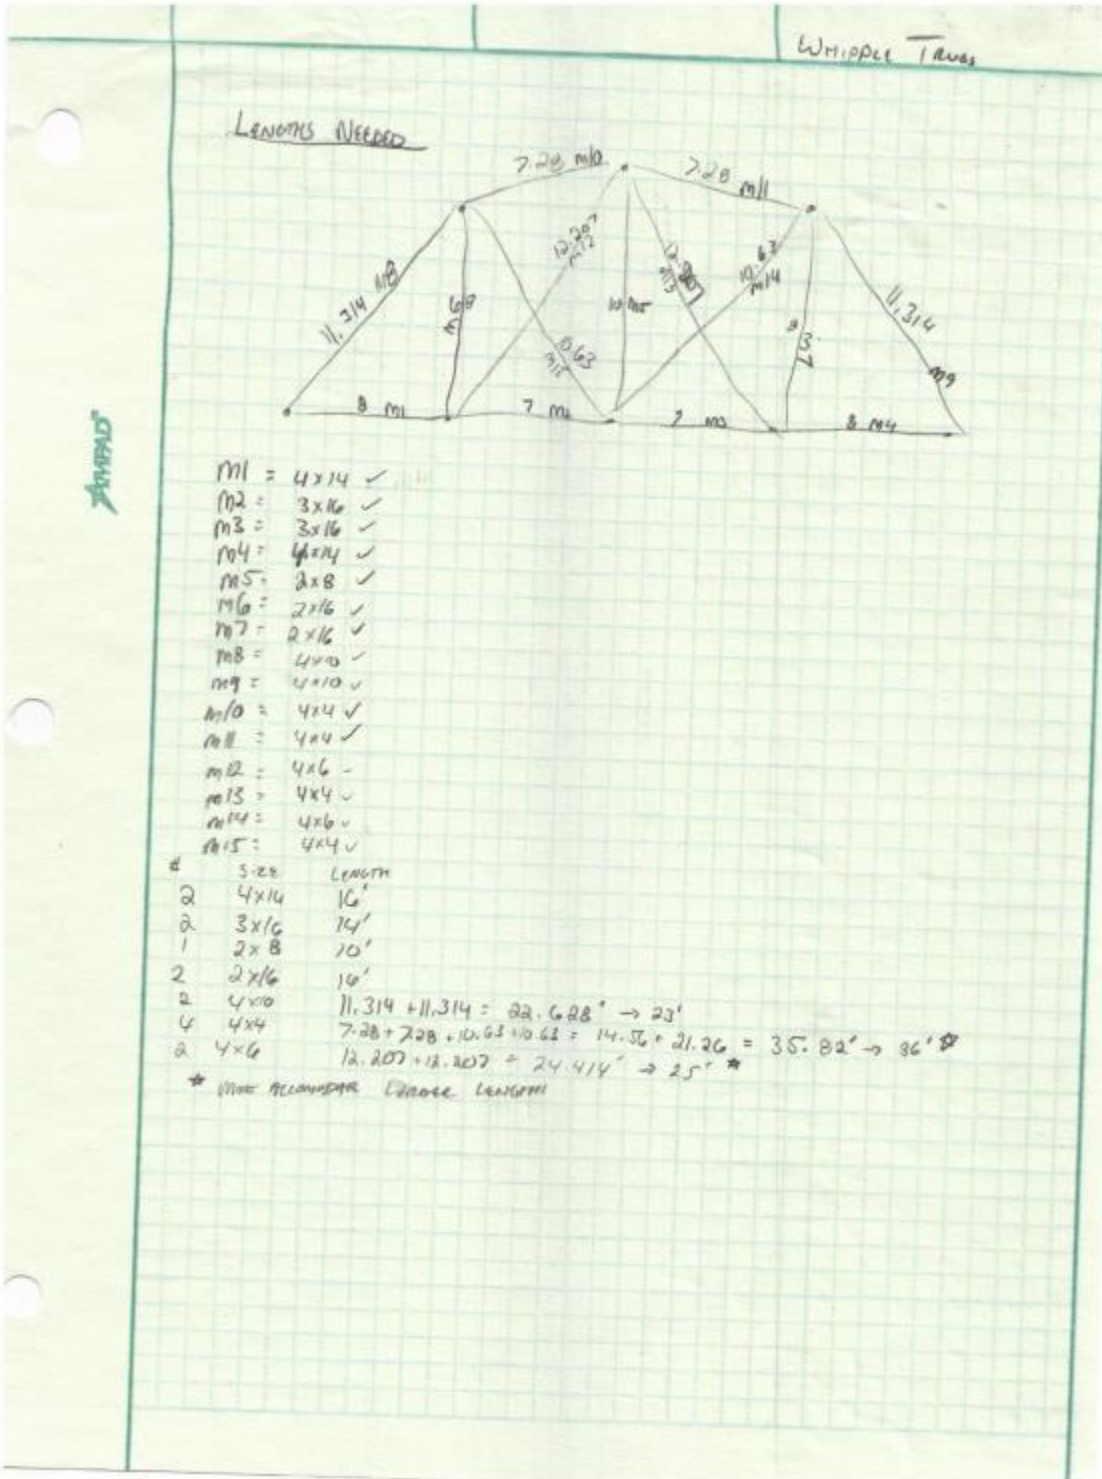 WHIPPLE TRUSS
LENGTHS NEEDED
7.28 m10
7.28 m11
11.314 m8
m6 8
12.207 m12
10.63 m15
10 m5
m13
10.63 m14
8 m7
11.314 m9
8 m1
7 m2
7 m3
8 m4
AMPAD
m1 = 4x14 ✓
m2 = 3x16 ✓
m3 = 3x16 ✓
m4 = 4x14 ✓
m5 = 2x8 ✓
m6 = 2x16 ✓
m7 = 2x16 ✓
m8 = 4x10 ✓
m9 = 4x10 ✓
m10 = 4x4 ✓
m11 = 4x4 ✓
m12 = 4x6 -
m13 = 4x4 ✓
m14 = 4x6 ✓
m15 = 4x4 ✓
# SIZE LENGTH
2 4x14 16'
2 3x16 14'
1 2x8 10'
2 2x16 16'
2 4x10 11.314 + 11.314 = 22.628' → 23'
4 4x4 7.28 + 7.28 + 10.63 + 10.63 = 14.56 + 21.26 = 35.82' → 36' *
2 4x6 12.207 + 12.207 = 24.414' → 25' *
* LENGTH